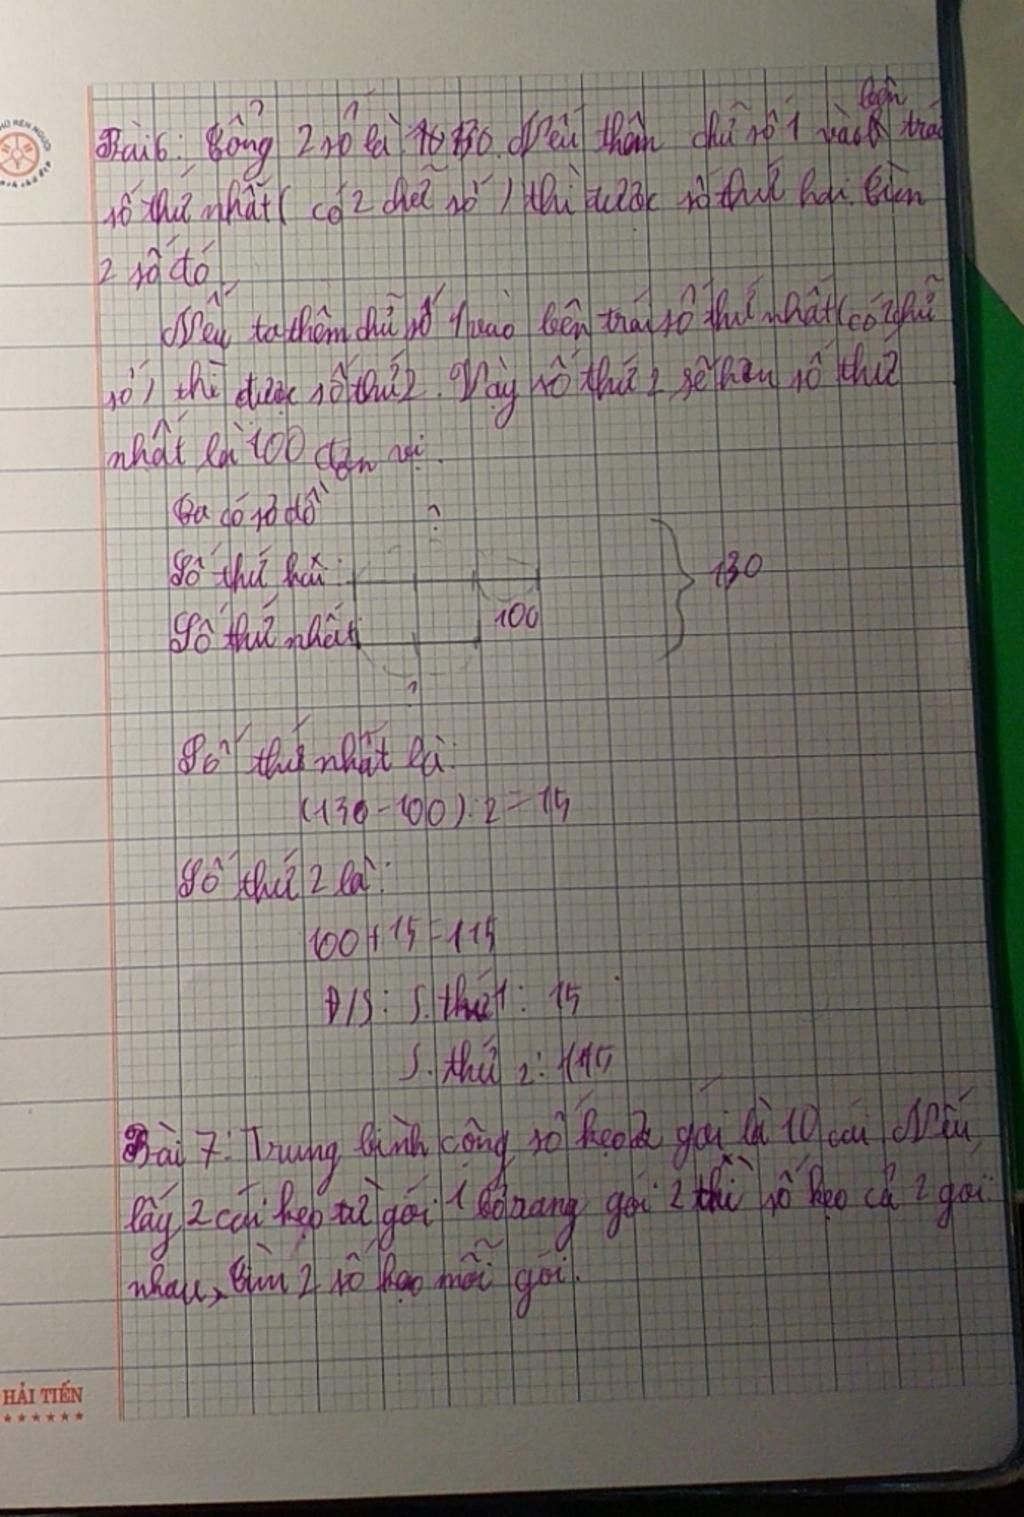 Bài 6: Tổng 2 số là 130. Nếu thêm chữ số 1 vào bên trái
số thứ nhất (có 2 chữ số) thì được số thứ hai. Tìm
2 số đó
Nếu ta thêm chữ số 1 vào bên trái số thứ nhất (có 2 chữ
số) thì được số thứ 2. Vậy số thứ 2 sẽ hơn số thứ
nhất là 100 đơn vị.
Ta có sơ đồ
?
Số thứ hai:
130
100
Số thứ nhất
?
Số thứ nhất là:
(130-100):2=15
Số thứ 2 là:
100+15=115
Đ/S: S. thứ 1: 15
S. thứ 2: 115
Bài 7: Trung bình cộng số kẹo 2 gói là 10 cái. Nếu
lấy 2 cái kẹo từ gói 1 bỏ sang gói 2 thì số kẹo cả 2 gói
nhau, tìm 2 số kẹo mỗi gói.
HẢI TIẾN